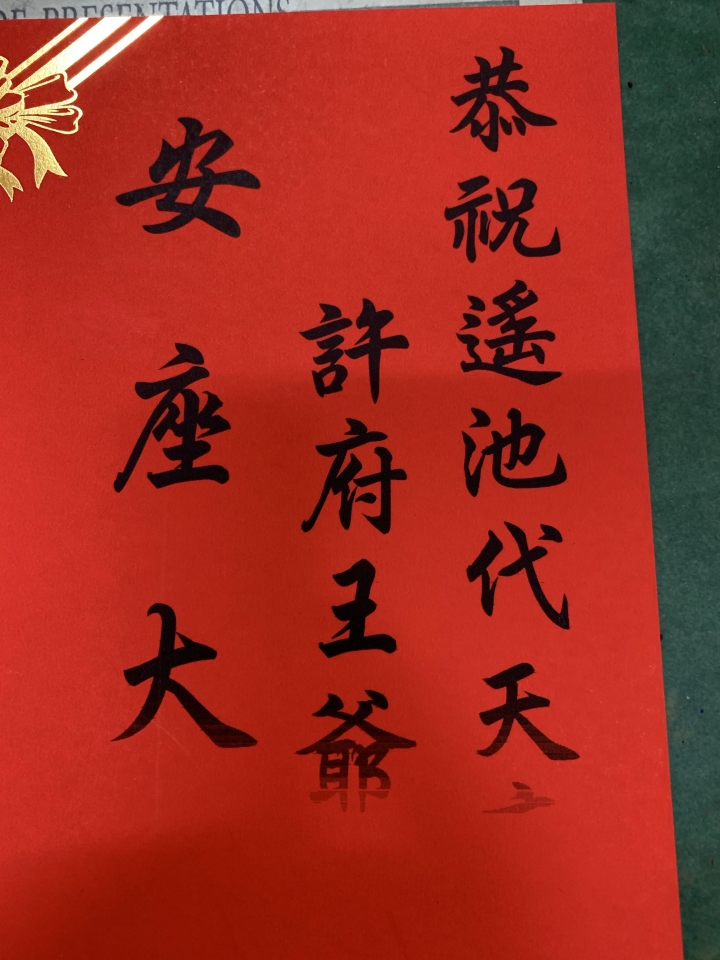 OF PRESENTATIONS
恭祝遙池代天
許府王爺
安座大